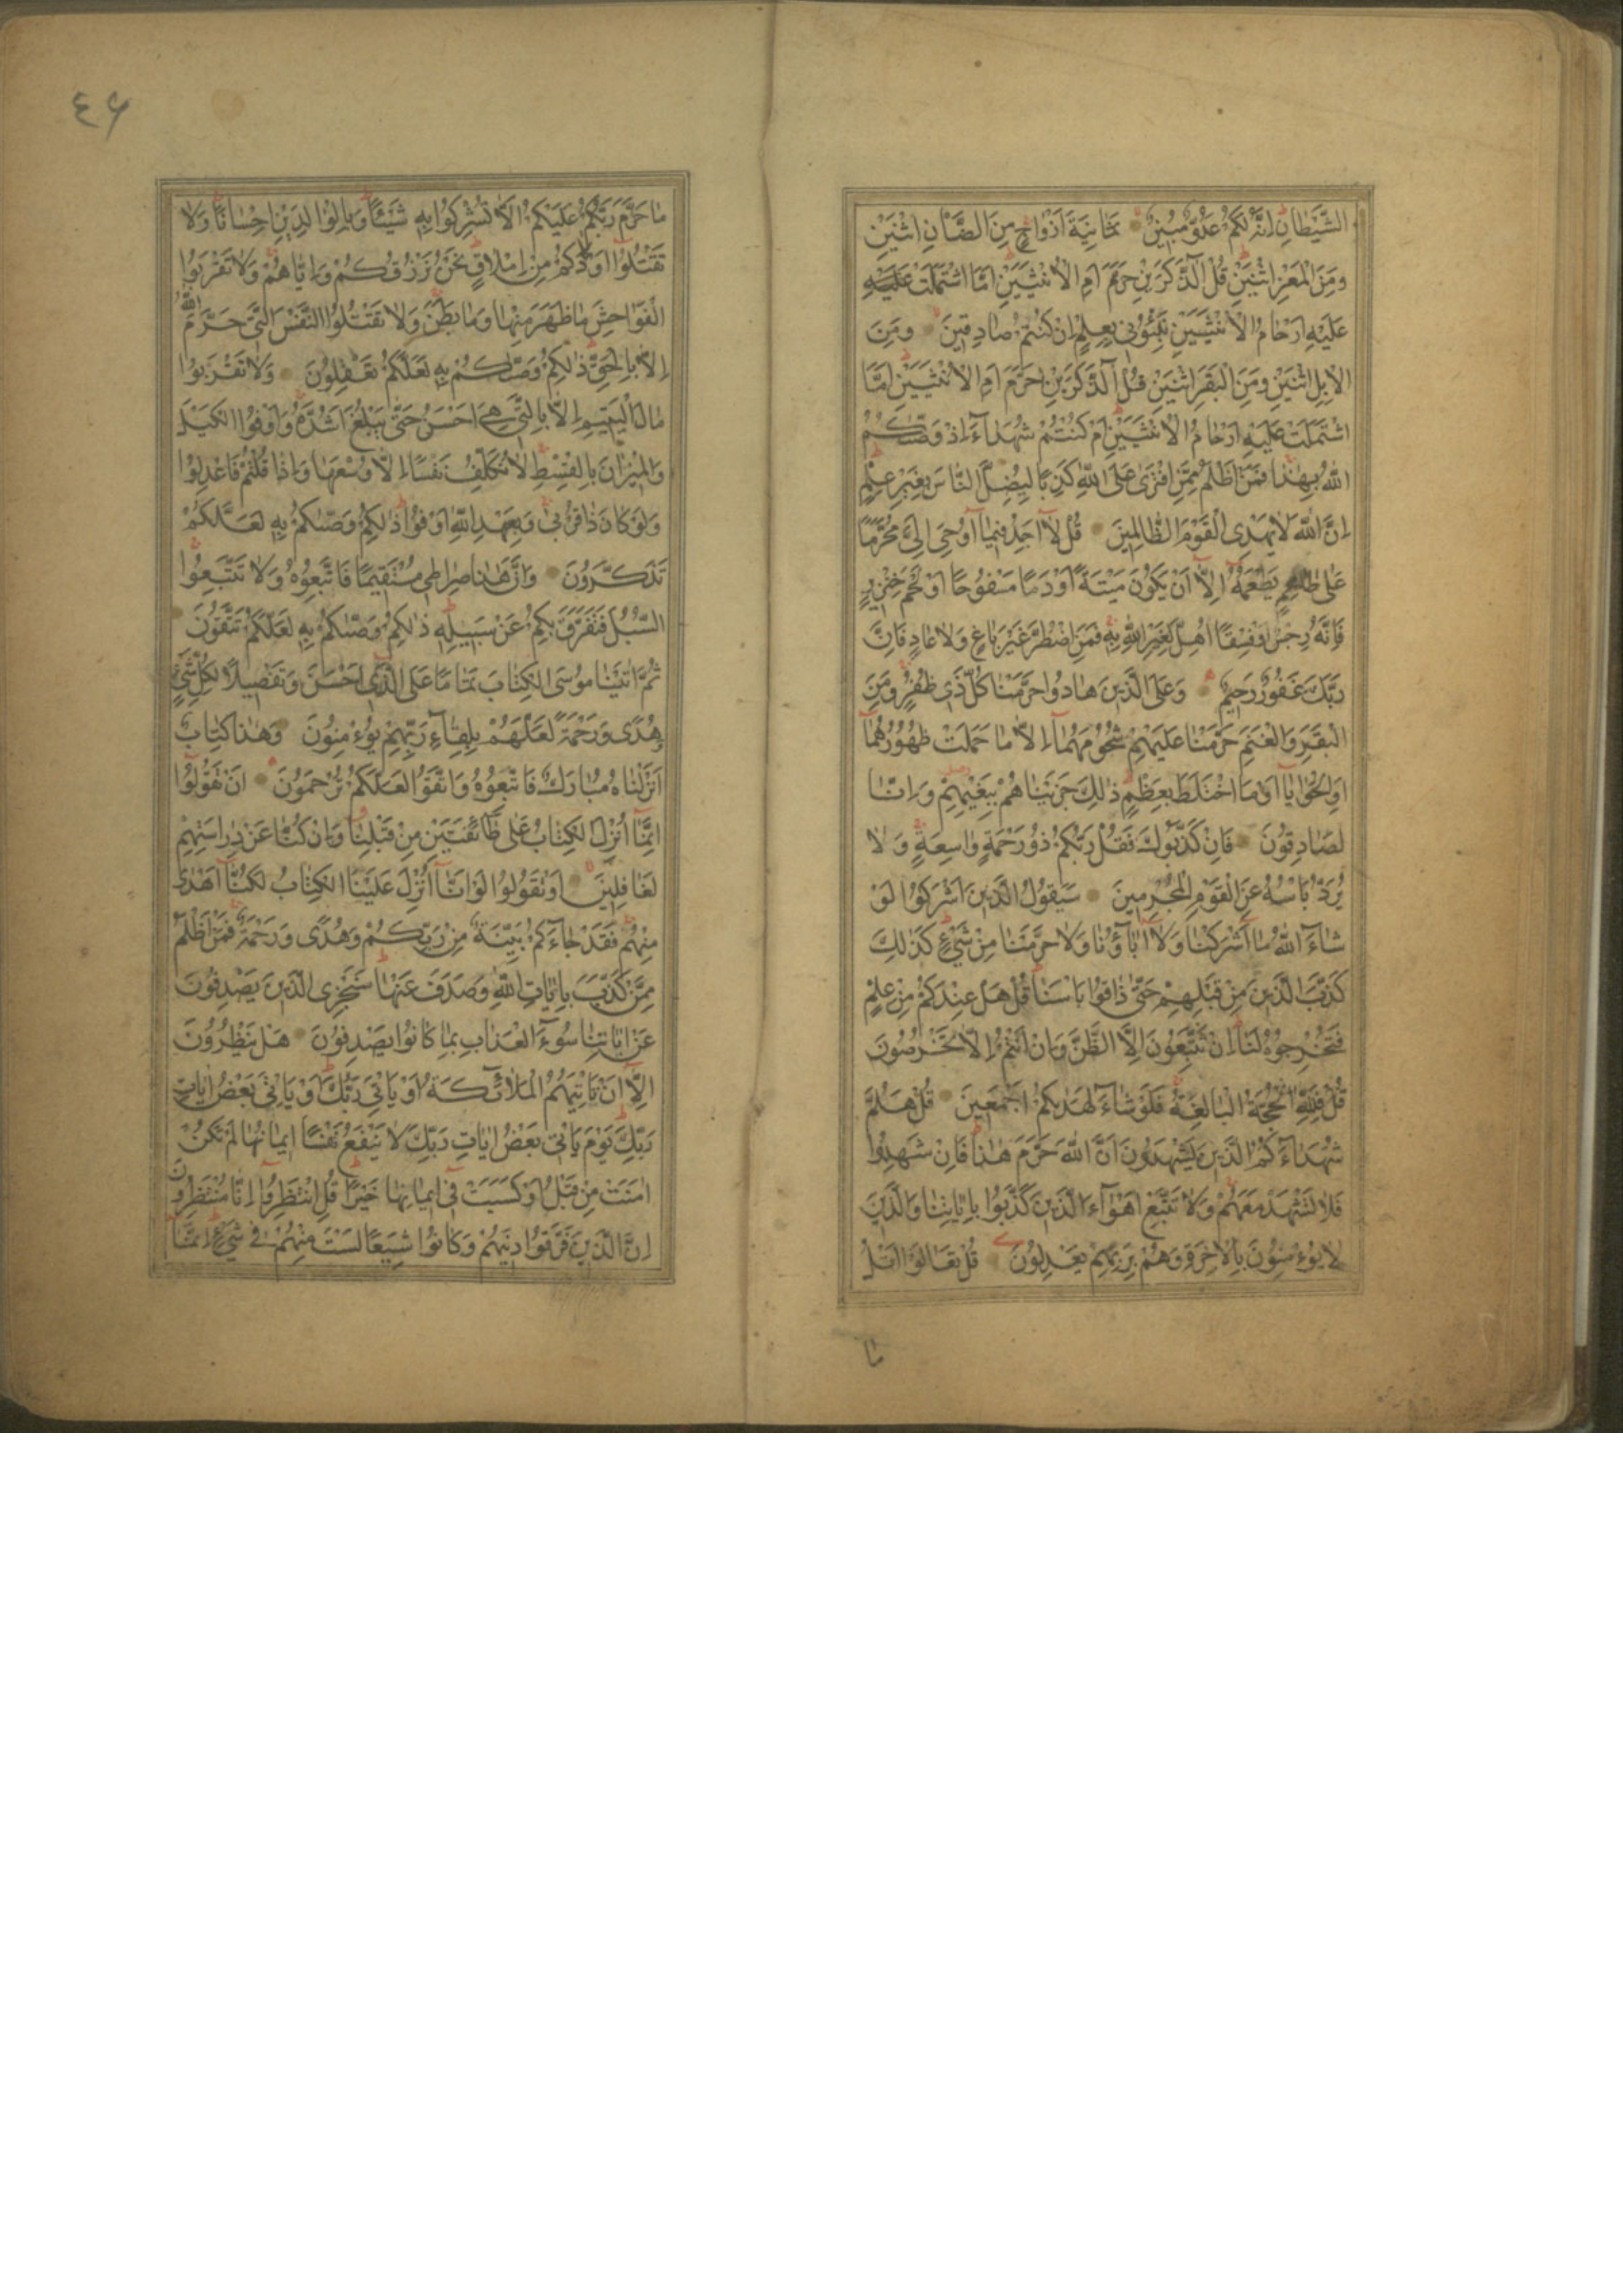 الشَّيْطَانِ اِنَّهُ لَكُمْ عَدُوٌّ مُبِينٌ ثَمَانِيَةَ اَزْوَاجٍ مِنَ الضَّأْنِ اثْنَيْنِ
وَمِنَ الْمَعْزِ اثْنَيْنِ قُلْ آلذَّكَرَيْنِ حَرَّمَ اَمِ الْاُنْثَيَيْنِ اَمَّا اشْتَمَلَتْ عَلَيْهِ
عَلَيْهِ اَرْحَامُ الْاُنْثَيَيْنِ نَبِّئُونِي بِعِلْمٍ اِنْ كُنْتُمْ صَادِقِينَ وَمِنَ
الْاِبِلِ اثْنَيْنِ وَمِنَ الْبَقَرِ اثْنَيْنِ قُلْ آلذَّكَرَيْنِ حَرَّمَ اَمِ الْاُنْثَيَيْنِ اَمَّا
اشْتَمَلَتْ عَلَيْهِ اَرْحَامُ الْاُنْثَيَيْنِ اَمْ كُنْتُمْ شُهَدَآءَ اِذْ وَصّٰىكُمُ
اللّٰهُ بِهٰذَا فَمَنْ اَظْلَمُ مِمَّنِ افْتَرٰى عَلَى اللّٰهِ كَذِبًا لِيُضِلَّ النَّاسَ بِغَيْرِ عِلْمٍ
اِنَّ اللّٰهَ لَا يَهْدِى الْقَوْمَ الظَّالِمِينَ قُلْ لَآ اَجِدُ فِيمَآ اُوحِىَ اِلَىَّ مُحَرَّمًا
عَلٰى طَاعِمٍ يَطْعَمُهُ اِلَّآ اَنْ يَكُونَ مَيْتَةً اَوْ دَمًا مَسْفُوحًا اَوْ لَحْمَ خِنْزِيرٍ
فَاِنَّهُ رِجْسٌ اَوْ فِسْقًا اُهِلَّ لِغَيْرِ اللّٰهِ بِهِ فَمَنِ اضْطُرَّ غَيْرَ بَاغٍ وَلَا عَادٍ فَاِنَّ
رَبَّكَ غَفُورٌ رَحِيمٌ وَعَلَى الَّذِينَ هَادُوا حَرَّمْنَا كُلَّ ذِى ظُفُرٍ وَمِنَ
الْبَقَرِ وَالْغَنَمِ حَرَّمْنَا عَلَيْهِمْ شُحُومَهُمَآ اِلَّا مَا حَمَلَتْ ظُهُورُهُمَآ
اَوِ الْحَوَايَآ اَوْ مَا اخْتَلَطَ بِعَظْمٍ ذٰلِكَ جَزَيْنَاهُمْ بِبَغْيِهِمْ وَاِنَّا
لَصَادِقُونَ فَاِنْ كَذَّبُوكَ فَقُلْ رَبُّكُمْ ذُو رَحْمَةٍ وَاسِعَةٍ وَلَا
يُرَدُّ بَأْسُهُ عَنِ الْقَوْمِ الْمُجْرِمِينَ سَيَقُولُ الَّذِينَ اَشْرَكُوا لَوْ
شَآءَ اللّٰهُ مَا اَشْرَكْنَا وَلَآ اٰبَآؤُنَا وَلَا حَرَّمْنَا مِنْ شَىْءٍ كَذٰلِكَ
كَذَّبَ الَّذِينَ مِنْ قَبْلِهِمْ حَتّٰى ذَاقُوا بَأْسَنَا قُلْ هَلْ عِنْدَكُمْ مِنْ عِلْمٍ
فَتُخْرِجُوهُ لَنَا اِنْ تَتَّبِعُونَ اِلَّا الظَّنَّ وَاِنْ اَنْتُمْ اِلَّا تَخْرُصُونَ
قُلْ فَلِلّٰهِ الْحُجَّةُ الْبَالِغَةُ فَلَوْ شَآءَ لَهَدٰىكُمْ اَجْمَعِينَ قُلْ هَلُمَّ
شُهَدَآءَكُمُ الَّذِينَ يَشْهَدُونَ اَنَّ اللّٰهَ حَرَّمَ هٰذَا فَاِنْ شَهِدُوا
فَلَا تَشْهَدْ مَعَهُمْ وَلَا تَتَّبِعْ اَهْوَآءَ الَّذِينَ كَذَّبُوا بِاٰيَاتِنَا وَالَّذِينَ
لَا يُؤْمِنُونَ بِالْاٰخِرَةِ وَهُمْ بِرَبِّهِمْ يَعْدِلُونَ قُلْ تَعَالَوْا اَتْلُ
مَا
٤٦
مَا حَرَّمَ رَبُّكُمْ عَلَيْكُمْ اَلَّا تُشْرِكُوا بِهِ شَيْئًا وَبِالْوَالِدَيْنِ اِحْسَانًا وَلَا
تَقْتُلُوا اَوْلَادَكُمْ مِنْ اِمْلَاقٍ نَحْنُ نَرْزُقُكُمْ وَاِيَّاهُمْ وَلَا تَقْرَبُوا
الْفَوَاحِشَ مَا ظَهَرَ مِنْهَا وَمَا بَطَنَ وَلَا تَقْتُلُوا النَّفْسَ الَّتِى حَرَّمَ اللّٰهُ
اِلَّا بِالْحَقِّ ذٰلِكُمْ وَصّٰىكُمْ بِهِ لَعَلَّكُمْ تَعْقِلُونَ وَلَا تَقْرَبُوا
مَالَ الْيَتِيمِ اِلَّا بِالَّتِى هِىَ اَحْسَنُ حَتّٰى يَبْلُغَ اَشُدَّهُ وَاَوْفُوا الْكَيْلَ
وَالْمِيزَانَ بِالْقِسْطِ لَا نُكَلِّفُ نَفْسًا اِلَّا وُسْعَهَا وَاِذَا قُلْتُمْ فَاعْدِلُوا
وَلَوْ كَانَ ذَا قُرْبٰى وَبِعَهْدِ اللّٰهِ اَوْفُوا ذٰلِكُمْ وَصّٰىكُمْ بِهِ لَعَلَّكُمْ
تَذَكَّرُونَ وَاَنَّ هٰذَا صِرَاطِى مُسْتَقِيمًا فَاتَّبِعُوهُ وَلَا تَتَّبِعُوا
السُّبُلَ فَتَفَرَّقَ بِكُمْ عَنْ سَبِيلِهِ ذٰلِكُمْ وَصّٰىكُمْ بِهِ لَعَلَّكُمْ تَتَّقُونَ
ثُمَّ اٰتَيْنَا مُوسَى الْكِتَابَ تَمَامًا عَلَى الَّذِى اَحْسَنَ وَتَفْصِيلًا لِكُلِّ شَىْءٍ
وَهُدًى وَرَحْمَةً لَعَلَّهُمْ بِلِقَآءِ رَبِّهِمْ يُؤْمِنُونَ وَهٰذَا كِتَابٌ
اَنْزَلْنَاهُ مُبَارَكٌ فَاتَّبِعُوهُ وَاتَّقُوا لَعَلَّكُمْ تُرْحَمُونَ اَنْ تَقُولُوا
اِنَّمَآ اُنْزِلَ الْكِتَابُ عَلٰى طَآئِفَتَيْنِ مِنْ قَبْلِنَا وَاِنْ كُنَّا عَنْ دِرَاسَتِهِمْ
لَغَافِلِينَ اَوْ تَقُولُوا لَوْ اَنَّآ اُنْزِلَ عَلَيْنَا الْكِتَابُ لَكُنَّآ اَهْدٰى
مِنْهُمْ فَقَدْ جَآءَكُمْ بَيِّنَةٌ مِنْ رَبِّكُمْ وَهُدًى وَرَحْمَةٌ فَمَنْ اَظْلَمُ
مِمَّنْ كَذَّبَ بِاٰيَاتِ اللّٰهِ وَصَدَفَ عَنْهَا سَنَجْزِى الَّذِينَ يَصْدِفُونَ
عَنْ اٰيَاتِنَا سُوءَ الْعَذَابِ بِمَا كَانُوا يَصْدِفُونَ هَلْ يَنْظُرُونَ
اِلَّآ اَنْ تَأْتِيَهُمُ الْمَلَآئِكَةُ اَوْ يَأْتِىَ رَبُّكَ اَوْ يَأْتِىَ بَعْضُ اٰيَاتِ
رَبِّكَ يَوْمَ يَأْتِى بَعْضُ اٰيَاتِ رَبِّكَ لَا يَنْفَعُ نَفْسًا اِيمَانُهَا لَمْ تَكُنْ
اٰمَنَتْ مِنْ قَبْلُ اَوْ كَسَبَتْ فِى اِيمَانِهَا خَيْرًا قُلِ انْتَظِرُوا اِنَّا مُنْتَظِرُونَ
اِنَّ الَّذِينَ فَرَّقُوا دِينَهُمْ وَكَانُوا شِيَعًا لَسْتَ مِنْهُمْ فِى شَىْءٍ اِنَّمَآ